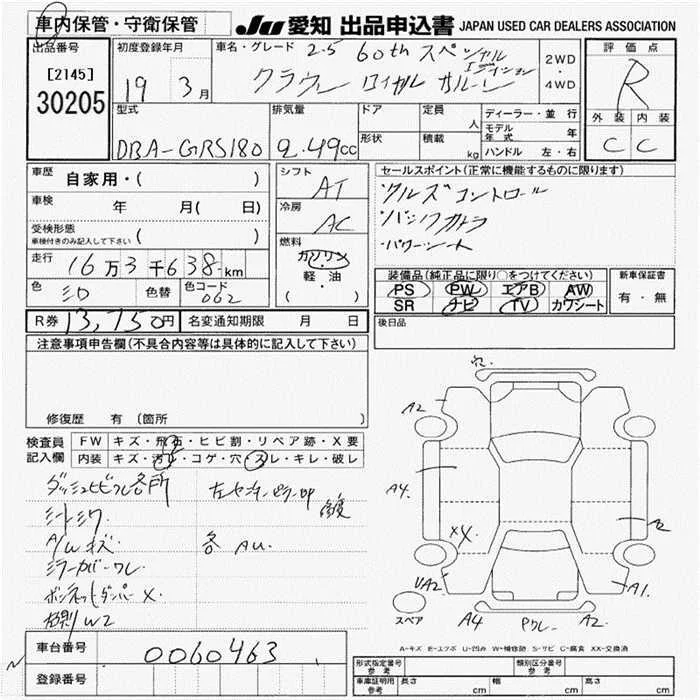 車内保管・守衛保管
JU 愛知 出品申込書 JAPAN USED CAR DEALERS ASSOCIATION
出品番号
[2145]
30205
初度登録年月
19年 3月
車名・グレード 2.5 60th スペシャル
エディション
クラウン ロイヤル サルーン
2WD
・
4WD
評価点
R
外装 内装
C C
型式
DBA-GRS180
排気量
2.49cc
ドア
形状
定員
人
積載
kg
ディーラー・並行
モデル年式 年
ハンドル 左・右
車歴 自家用・( )
車検 年 月( 日)
受検形態
車検付きのみ記入して下さい ( )
走行 16万3千638km
色 シロ 色替 色コード 062
R券 13,750円 名変通知期限 月 日
シフト AT
冷房 AC
燃料
ガソリン
・
軽・油
( )
セールスポイント(正常に機能するものに限ります)
クルーズコントロール
バックカメラ
パワーシート
装備品(純正品に限り○をつけてください)
PS PW エアB AW
SR ナビ TV カワシート
新車保証書
有・無
後日品
注意事項申告欄(不具合内容等は具体的に記入して下さい)
修復歴 有(箇所 )
検査員
記入欄
FW キズ・飛石・ヒビ割・リペア跡・X要
内装 キズ・汚レ・コゲ・穴・スレ・キレ・破レ
ダッシュヒビワレ各所
シートシワ
A/Wキズ
ミラーカバーワレ
ボンネットダンパーX
左センターピラー凹
修復
各 AU.
W2
車台番号 0060463
登録番号
A2
A4
XX
UA2
A4
A2
A1
A2
スペア
A-キズ E-エクボ U-凹み W-補修跡 S-サビ C-腐食 XX-交換済
形式指定番号
参考
類別区分番号
参考
車庫証明用
参考
長さ cm
幅 cm
高さ cm